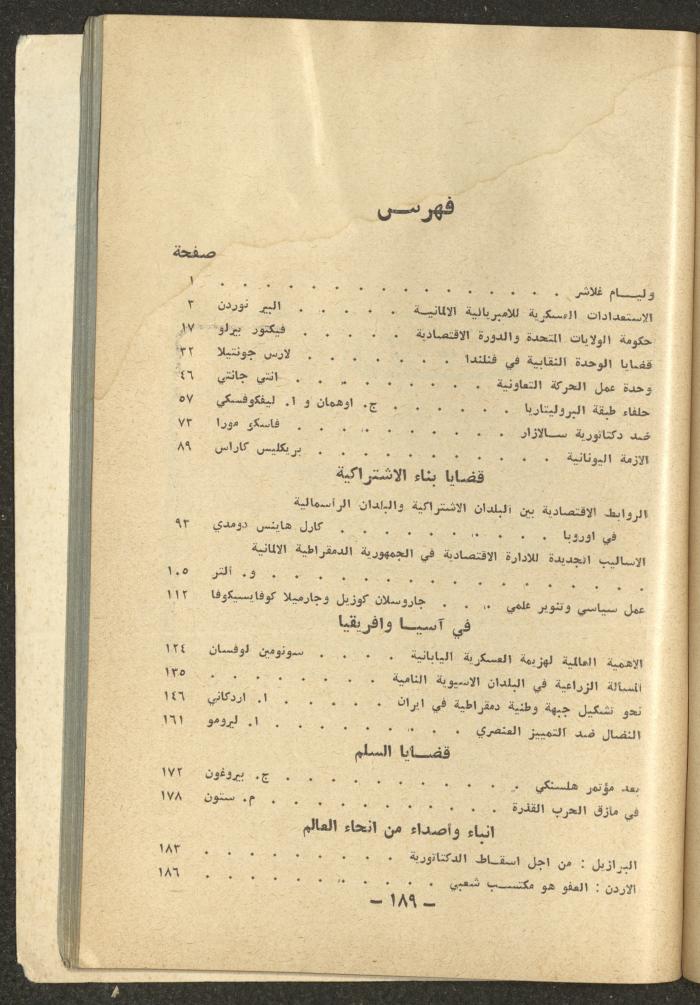 فهرس
صفحة
وليام غلاشر . . . . . . . . . . . . . . . ١
الاستعدادات العسكرية للامبريالية الالمانية . . . . . البير نوردن ٣
حكومة الولايات المتحدة والدورة الاقتصادية . . . . . فيكتور بيرلو ١٧
قضايا الوحدة النقابية في فنلندا . . . . . . . لارس جونتيلا ٣٢
وحدة عمل الحركة التعاونية . . . . . . . . انتي جانتي ٤٦
حلفاء طبقة البروليتاريا . . . . . . ج. اوهمان و ا. ليفكوفسكي ٥٧
ضد دكتاتورية سالازار . . . . . . . . . فاسكو مورا ٧٣
الازمة اليونانية . . . . . . . . . . . بريكليس كاراس ٨٩
قضايا بناء الاشتراكية
الروابط الاقتصادية بين البلدان الاشتراكية والبلدان الرأسمالية
في اوروبا . . . . . . . . . . كارل هاينس دومدي ٩٣
الاساليب الجديدة للادارة الاقتصادية في الجمهورية الدمقراطية الالمانية
. . . . . . . . . . . . . . و. ألتر ١٠٥
عمل سياسي وتنوير علمي . . . . جاروسلان كوزيل وجارميلا كوفايسيكوفا ١١٢
في آسيا وافريقيا
الاهمية العالمية لهزيمة العسكرية اليابانية . . . . سونومين لوفسان ١٢٤
المسألة الزراعية في البلدان الاسيوية النامية . . . . . . . . ١٣٥
نحو تشكيل جبهة وطنية دمقراطية في ايران . . . . . ا. اردكاني ١٤٦
النضال ضد التمييز العنصري . . . . . . . . ا. ليرومو ١٦١
قضايا السلم
بعد مؤتمر هلسنكي . . . . . . . . . . ج. بيروغون ١٧٢
في مازق الحرب القذرة . . . . . . . . . . م. ستون ١٧٨
انباء وأصداء من انحاء العالم
البرازيل : من اجل اسقاط الدكتاتورية . . . . . . . . ١٨٣
الاردن : العفو هو مكتسب شعبي . . . . . . . . . ١٨٦
- ١٨٩ -